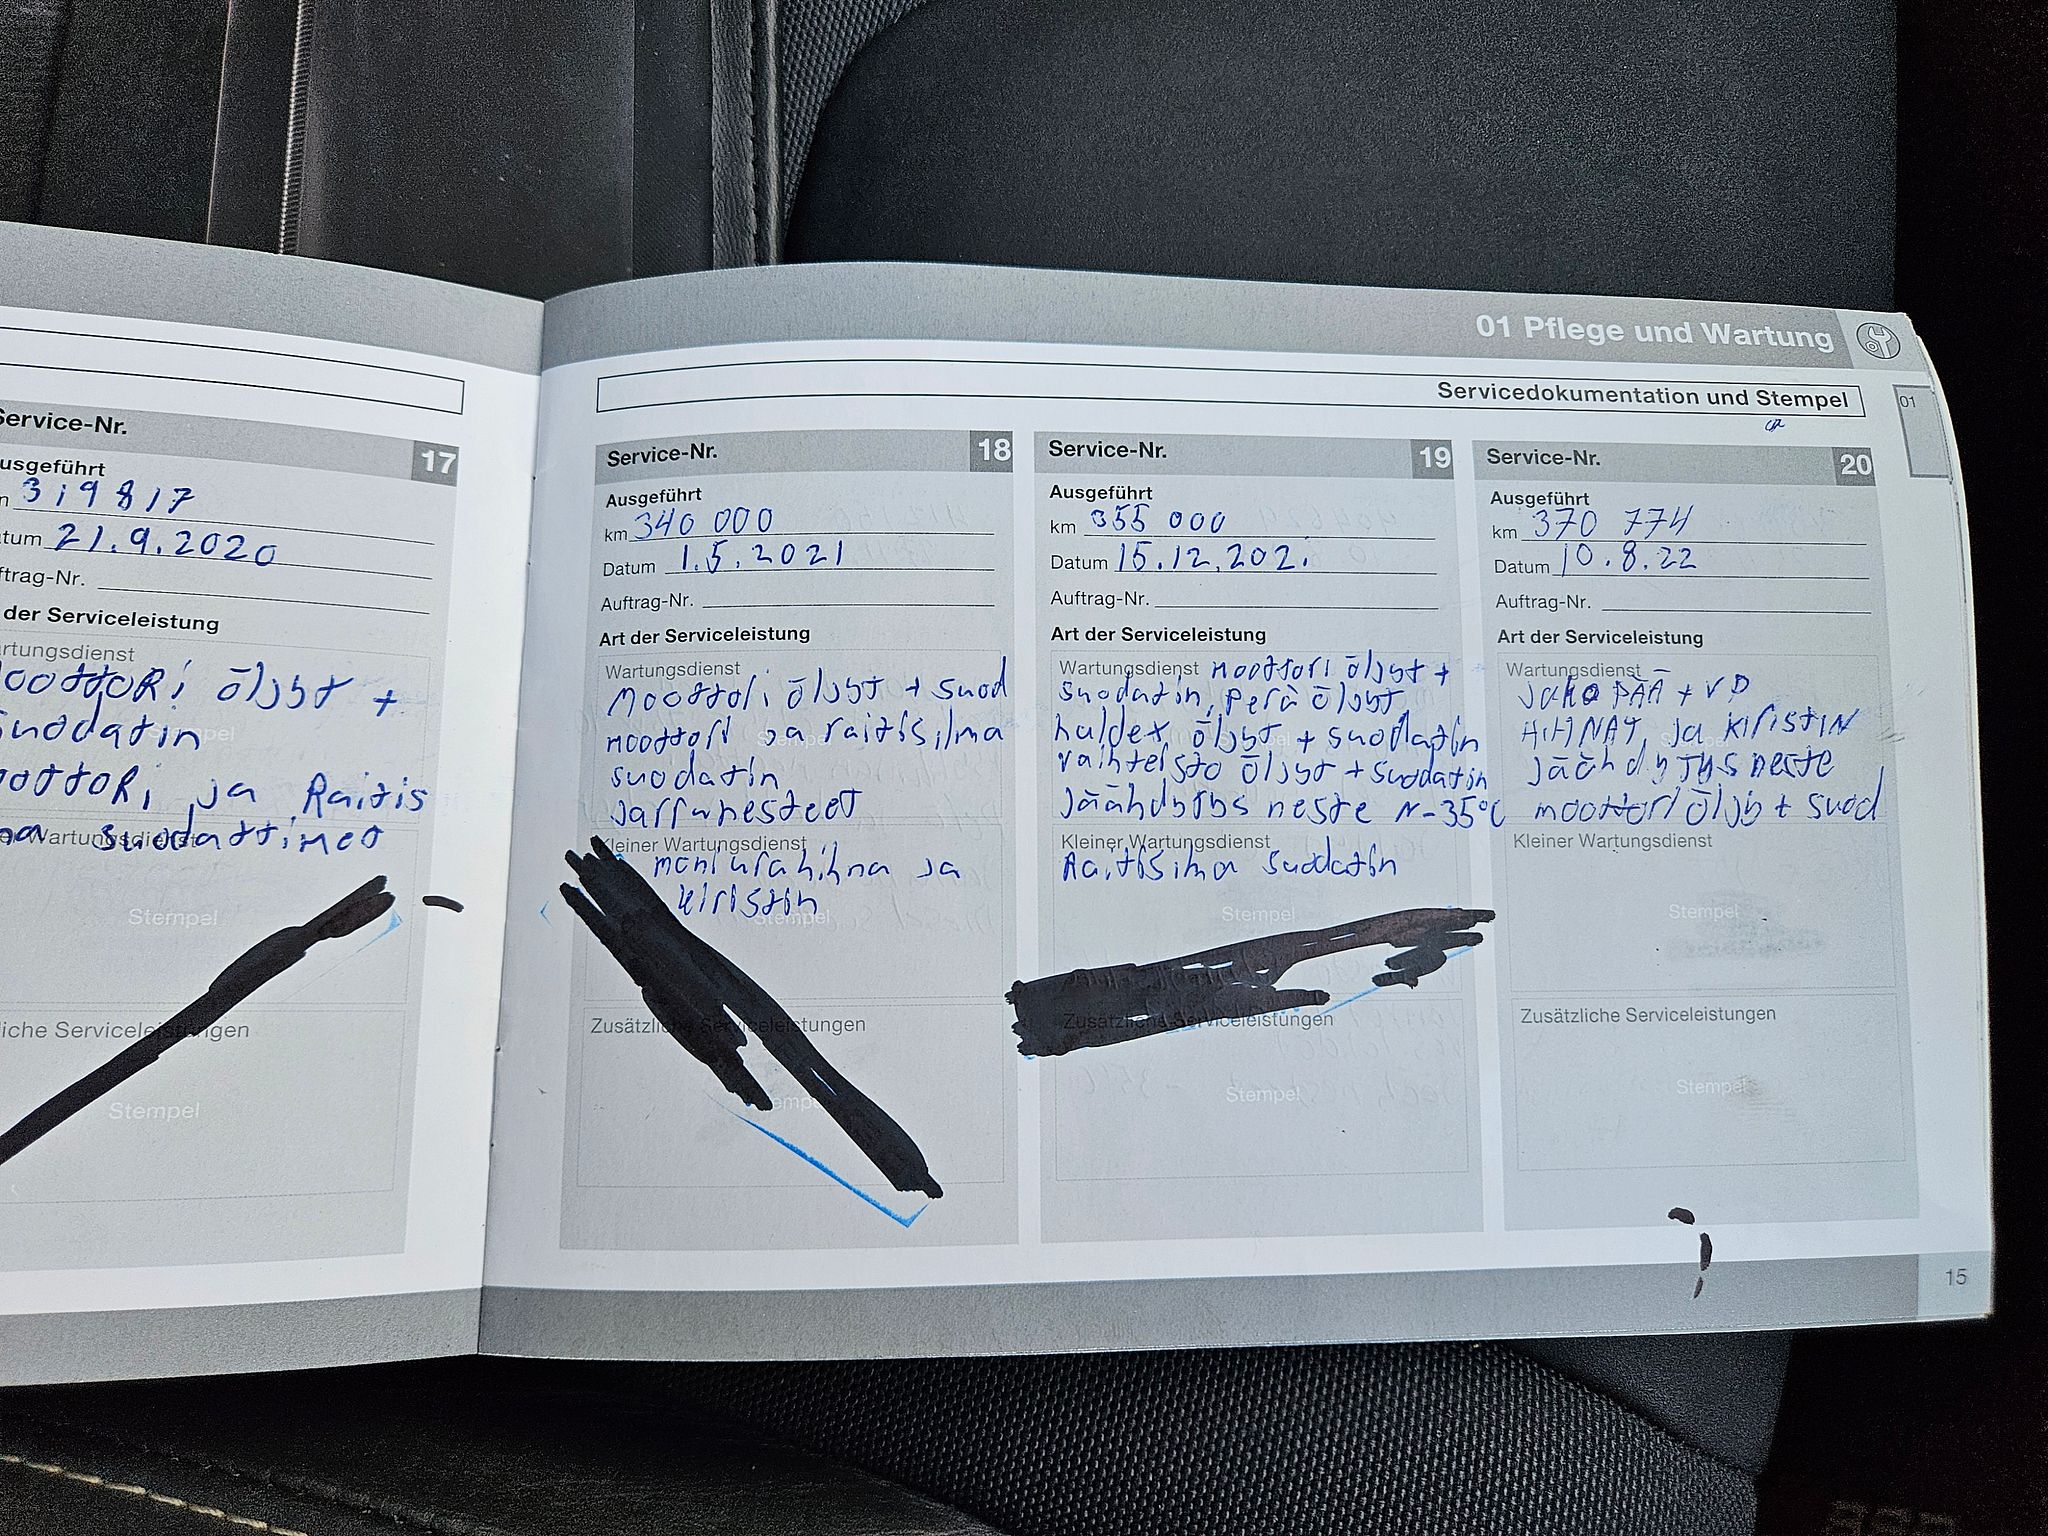 Service-Nr. 17
usgeführt
319817
tum 21.9.2020
ftrag-Nr.
der Serviceleistung
rtungsdienst
oottoRi öljyt +
suodatin
oottoRi ja Raitis
ma suodattimet
er Wartungsdienst
Stempel
liche Serviceleistungen
Stempel
01 Pflege und Wartung
Servicedokumentation und Stempel
01
Service-Nr. 18
Ausgeführt
km 340 000
Datum 1.5.2021
Auftrag-Nr.
Art der Serviceleistung
Wartungsdienst
Moottori öljyt + suod
moottori ja raitisilma
suodatin
Jarrunesteet
Kleiner Wartungsdienst
moniurahihna ja
kiristin
Zusätzliche Serviceleistungen
Stempel
Service-Nr. 19
Ausgeführt
km 355 000
Datum 15.12.202
Auftrag-Nr.
Art der Serviceleistung
Wartungsdienst moottori öljyt +
suodatin, perä öljyt
haldex öljyt + suodatin
vaihteisto öljyt + suodatin
Jäähdytys neste N-35°C
Kleiner Wartungsdienst
Raitisima suodatin
Stempel
Zusätzliche Serviceleistungen
Stempel
Service-Nr. 20
Ausgeführt
km 370 774
Datum 10.8.22
Auftrag-Nr.
Art der Serviceleistung
Wartungsdienst
Jako PÄÄ + VP
HIHNAT ja KiristiN
Jäähdytys neste
moottori öljy + suod
Kleiner Wartungsdienst
Stempel
Zusätzliche Serviceleistungen
Stempel
15